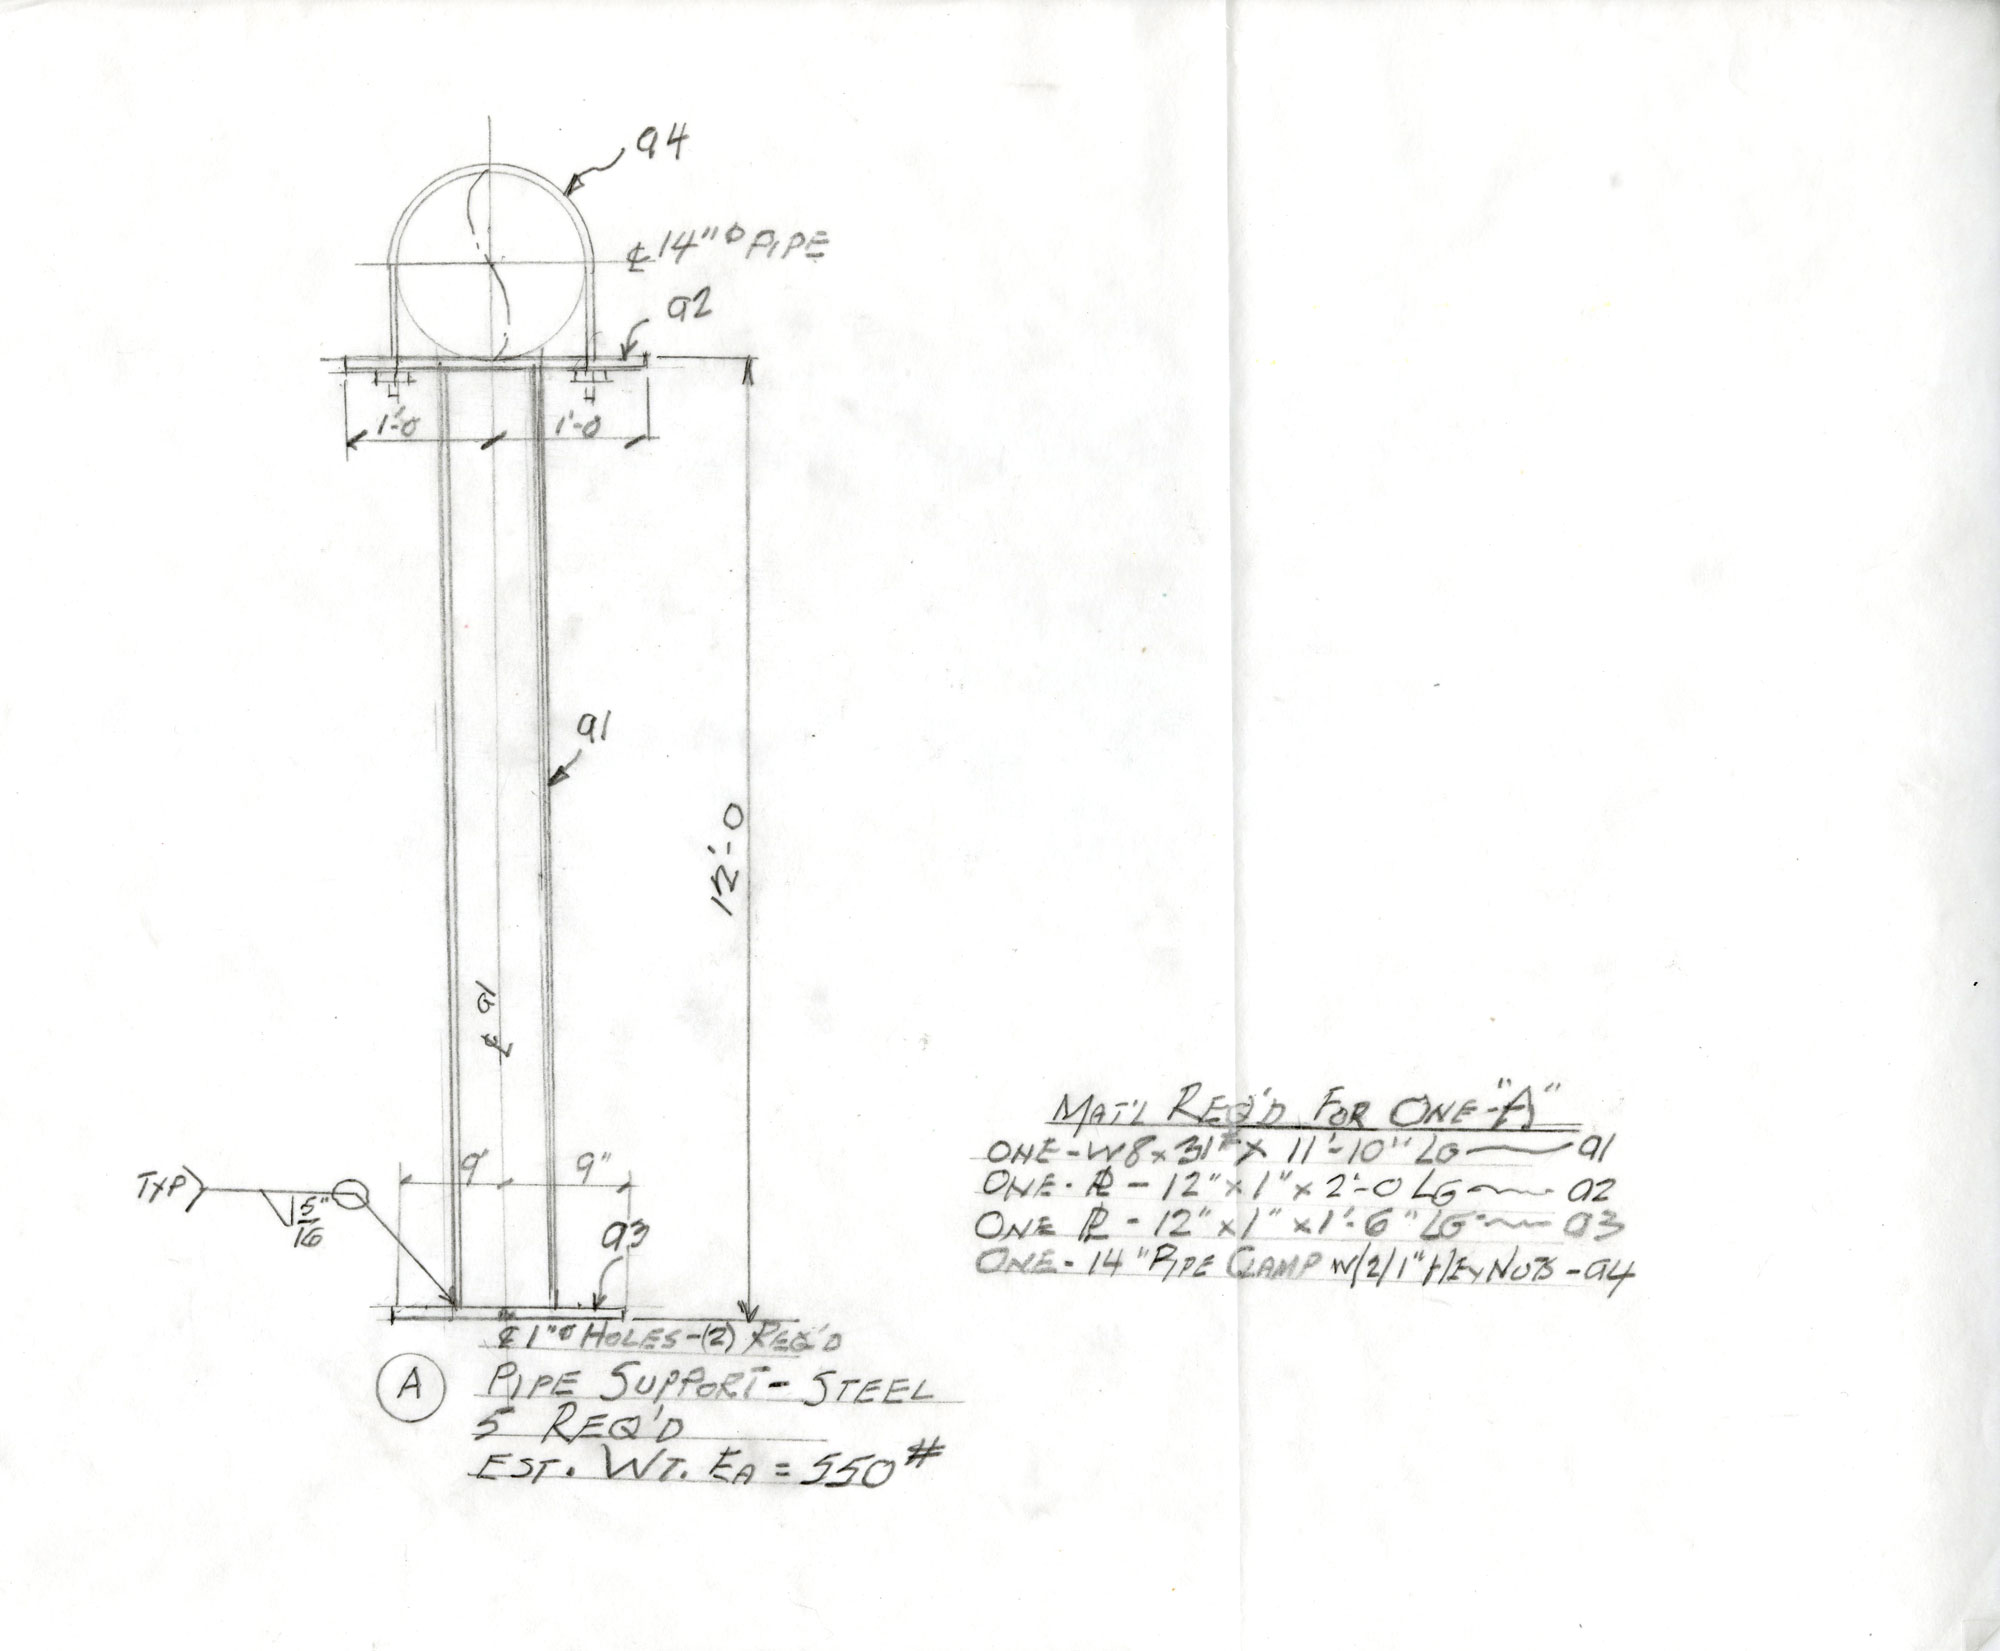 a4
℄ 14"⌀ PIPE
a2
1'-0 1'-0
a1
12'-0
℄ a1
9" 9"
TYP
5/16"
a3
℄ 1"⌀ HOLES-(2) REQ'D
A
PIPE SUPPORT - STEEL
5 REQ'D
EST. WT. EA = 550#
MAT'L REQ'D FOR ONE-"A"
ONE - W8 x 31# x 11'-10" LG a1
ONE - ℙL - 12" x 1" x 2'-0 LG a2
ONE ℙL - 12" x 1" x 1'-6" LG a3
ONE - 14" PIPE CLAMP W/(2) 1" HEX NUTS - a4